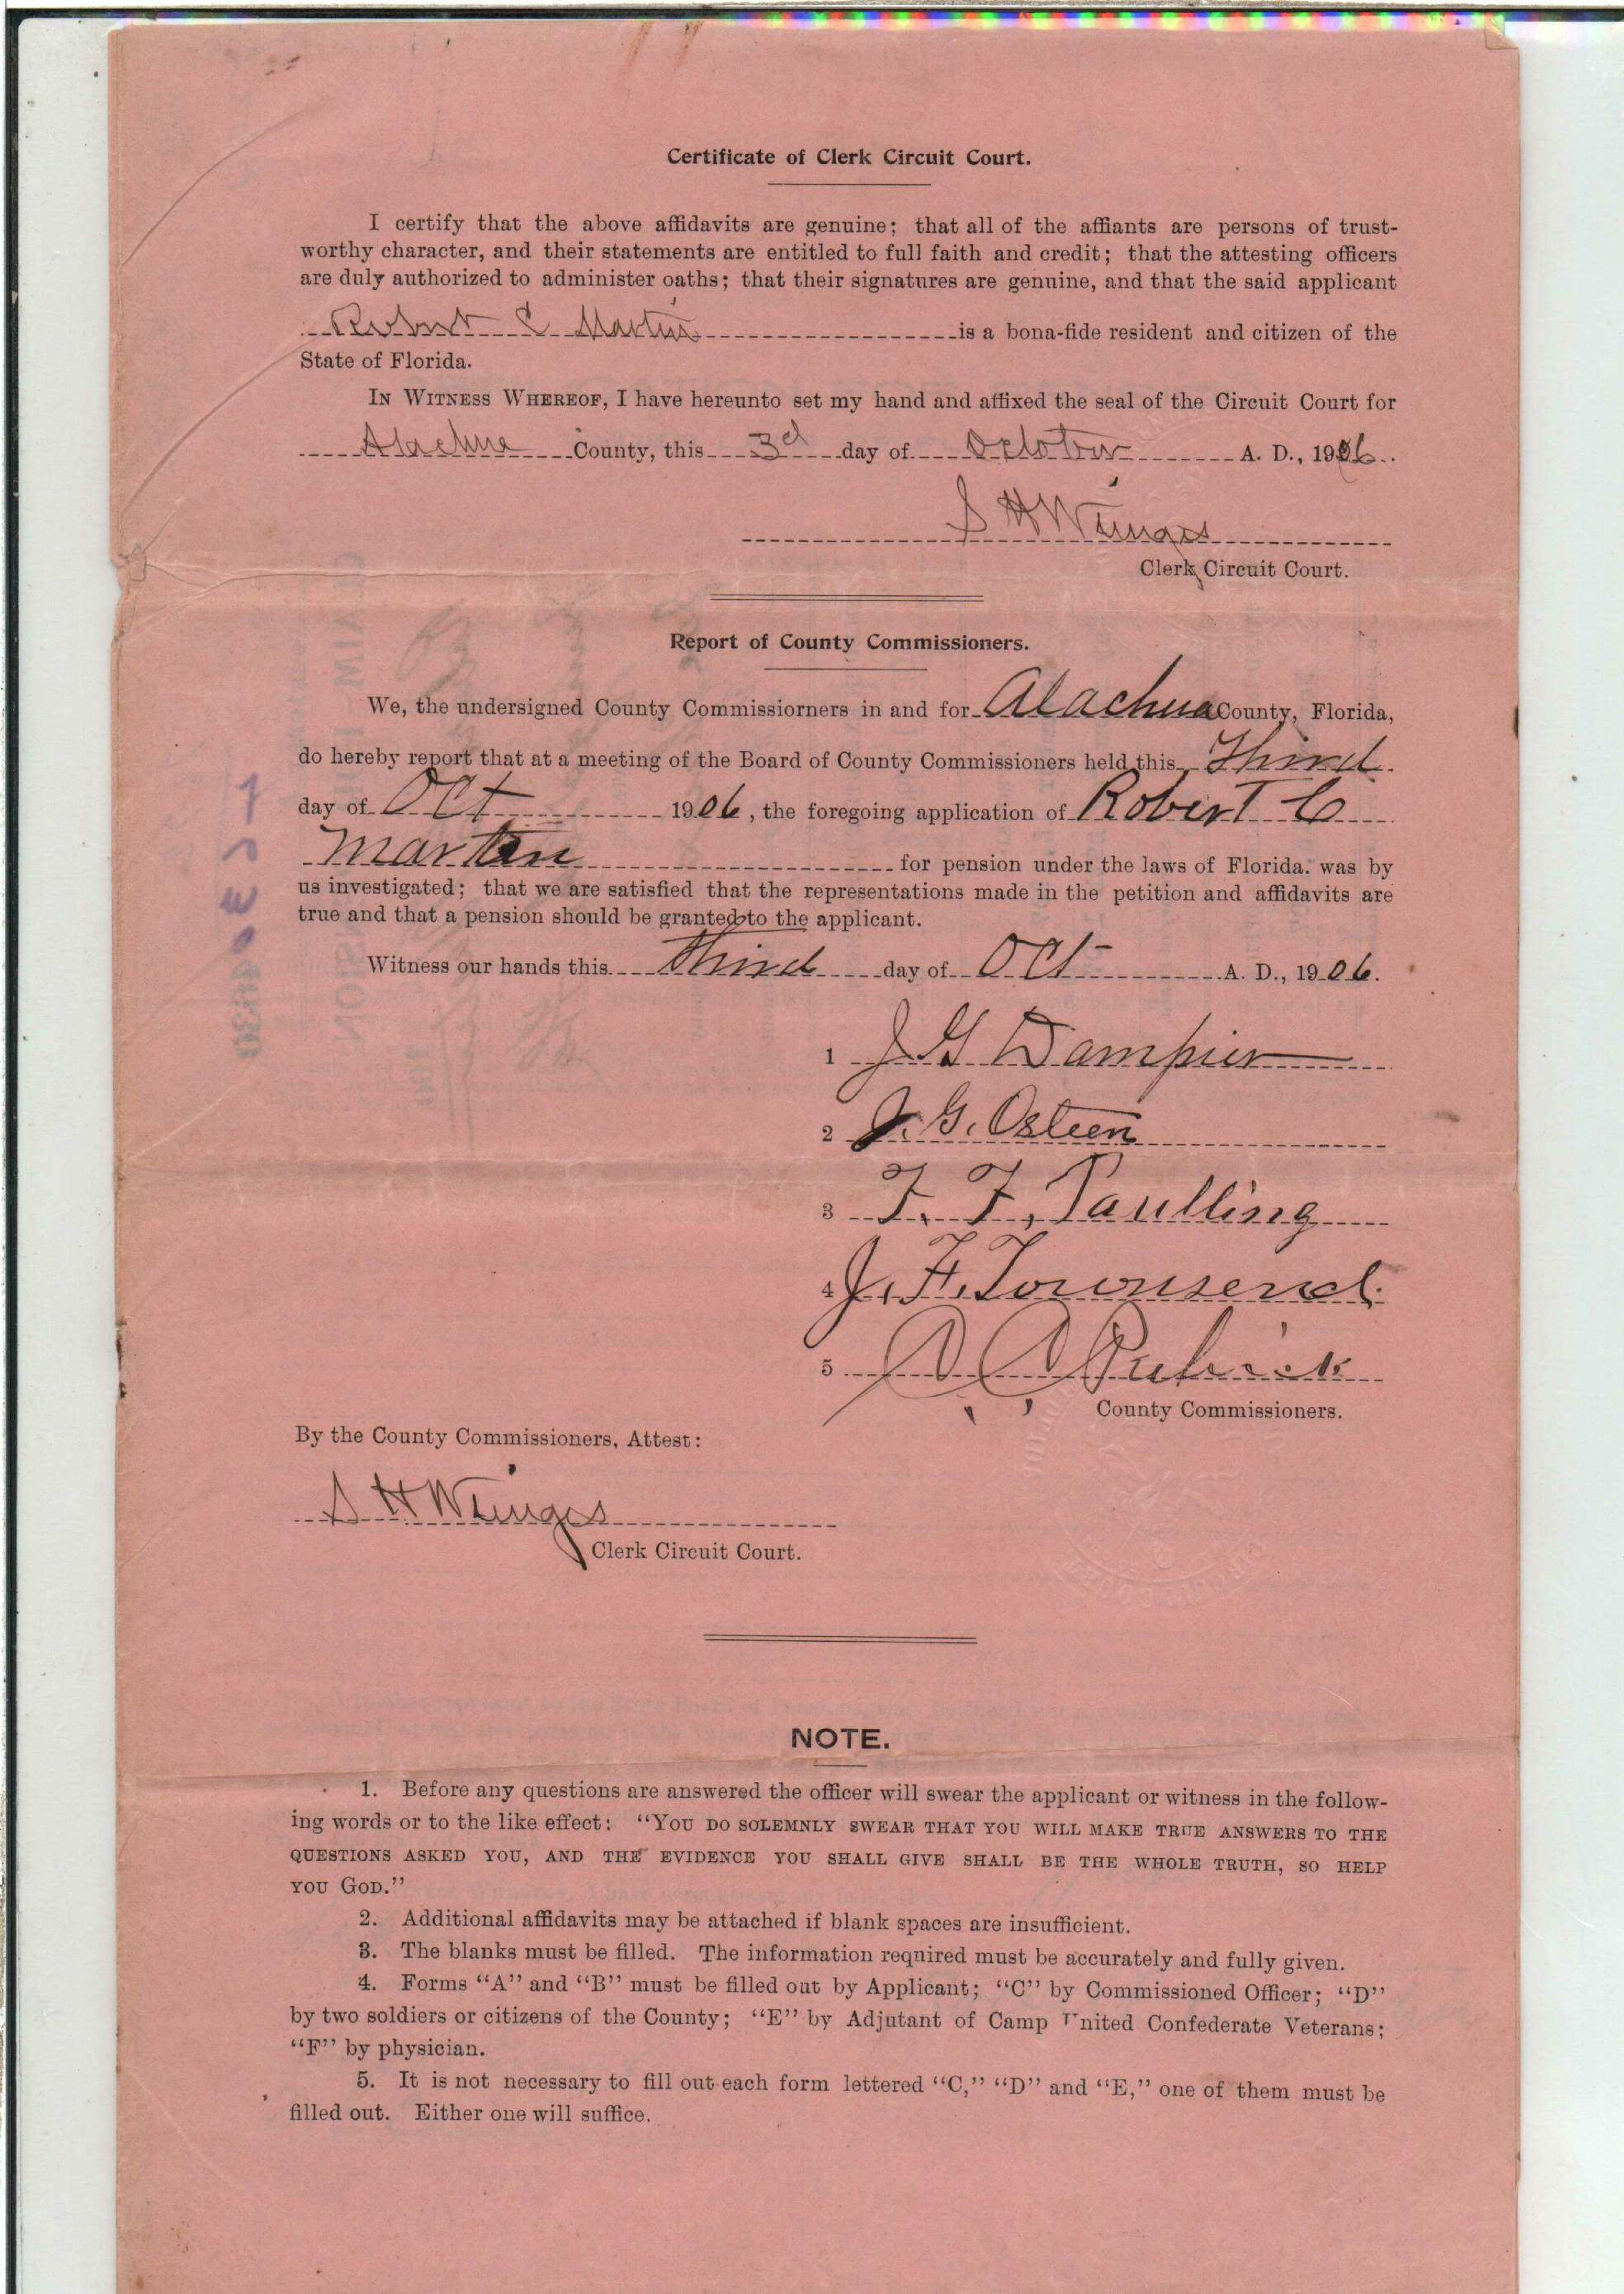 Certificate of Clerk Circuit Court.
I certify that the above affidavits are genuine; that all of the affiants are persons of trust-
worthy character, and their statements are entitled to full faith and credit; that the attesting officers
are duly authorized to administer oaths; that their signatures are genuine, and that the said applicant
Robert C Martin is a bona-fide resident and citizen of the
State of Florida.
IN WITNESS WHEREOF, I have hereunto set my hand and affixed the seal of the Circuit Court for
Alachua County, this 3d day of October A. D., 1906.
S H Wienges
Clerk Circuit Court.
Report of County Commissioners.
We, the undersigned County Commissiorners in and for Alachua County, Florida,
do hereby report that at a meeting of the Board of County Commissioners held this Third
day of Oct 1906, the foregoing application of Robert C
Martin for pension under the laws of Florida. was by
us investigated; that we are satisfied that the representations made in the petition and affidavits are
true and that a pension should be granted to the applicant.
Witness our hands this third day of Oct A. D., 1906.
1 J G Dampier
2 J. G. Osteen
3 F. F. Paulling
4 J. H. Townsend.
5
County Commissioners.
By the County Commissioners, Attest:
S H Wienges
Clerk Circuit Court.
NOTE.
1. Before any questions are answered the officer will swear the applicant or witness in the follow-
ing words or to the like effect: "YOU DO SOLEMNLY SWEAR THAT YOU WILL MAKE TRUE ANSWERS TO THE
QUESTIONS ASKED YOU, AND THE EVIDENCE YOU SHALL GIVE SHALL BE THE WHOLE TRUTH, SO HELP
YOU GOD."
2. Additional affidavits may be attached if blank spaces are insufficient.
3. The blanks must be filled. The information required must be accurately and fully given.
4. Forms "A" and "B" must be filled out by Applicant; "C" by Commissioned Officer; "D"
by two soldiers or citizens of the County; "E" by Adjutant of Camp United Confederate Veterans;
"F" by physician.
5. It is not necessary to fill out each form lettered "C," "D" and "E," one of them must be
filled out. Either one will suffice.